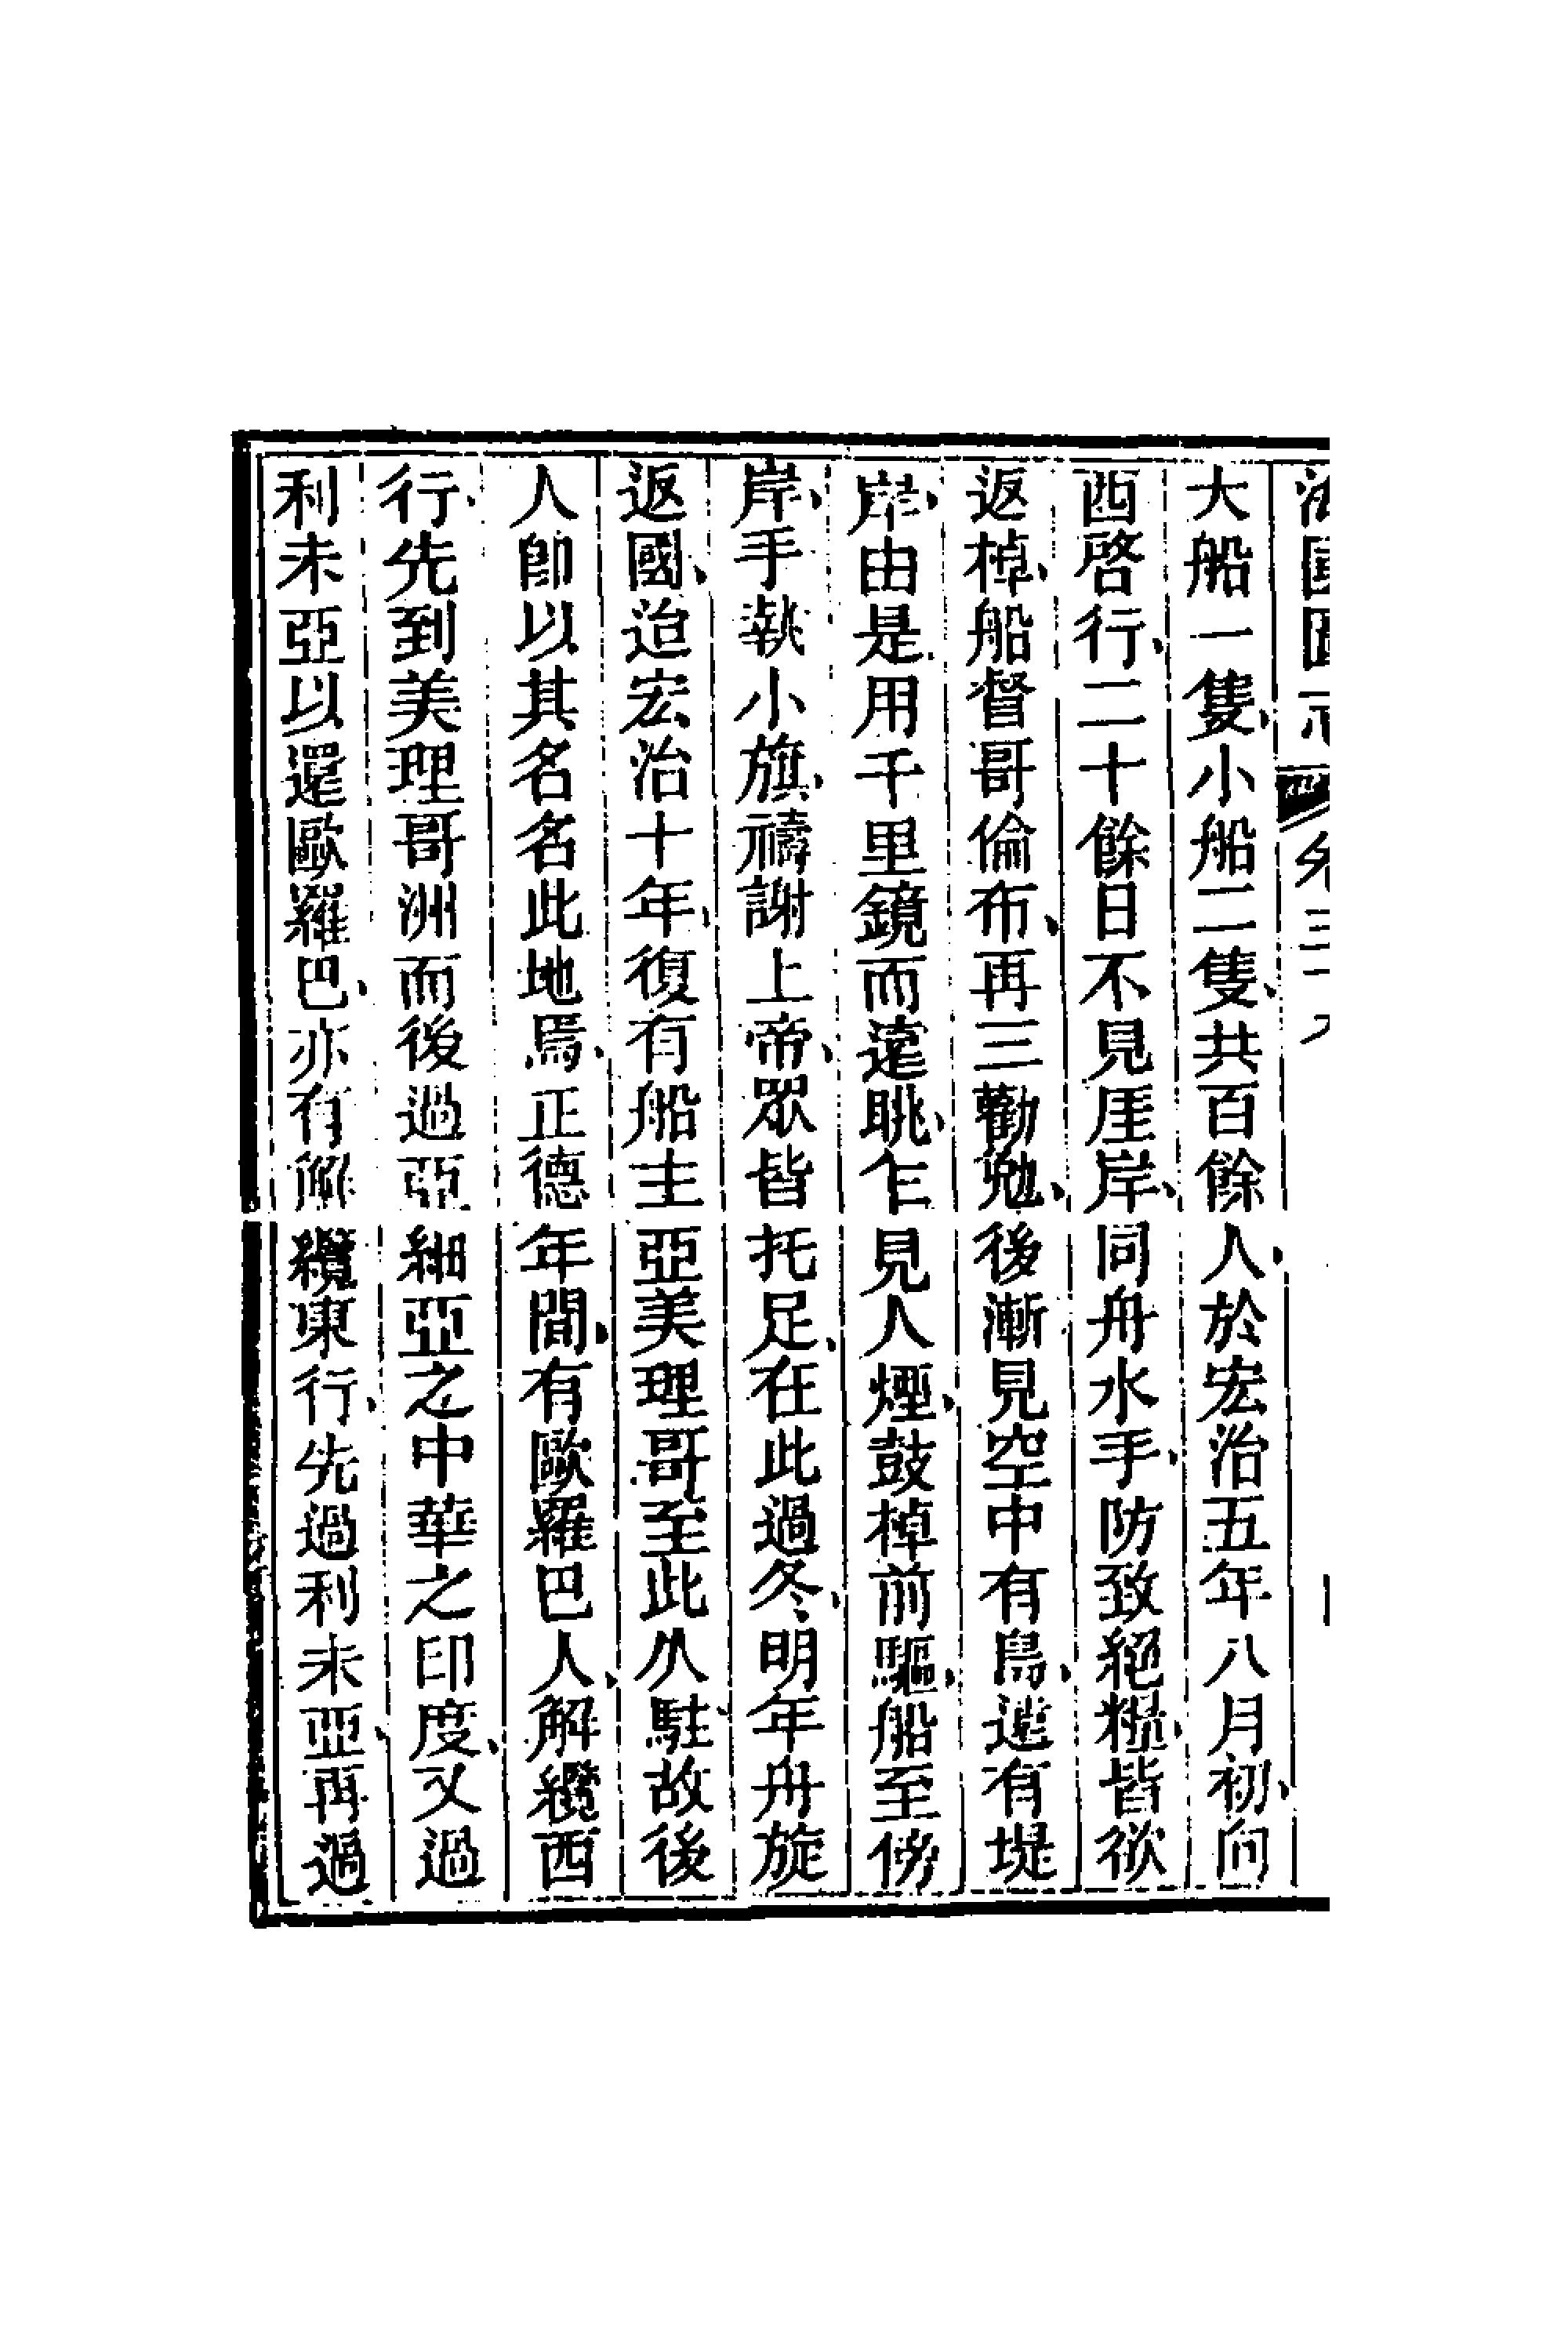 海國圖志 卷三十
大船一隻、小船二隻、共百餘人、於宏治五年八月初、向
西啓行、二十餘日不見厓岸、同舟水手、防致絕糧、皆欲
返棹、船督哥倫布、再三勸勉、後漸見空中有鳥、遠有堤
岸、由是用千里鏡而遠眺、乍見人煙、鼓棹前驅、船至傍
岸、手執小旗、禱謝上帝、眾皆托足、在此過冬、明年舟旋
返國、迨宏治十年、復有船主亞美理哥至此久駐、故後
人卽以其名名此地焉、正德年間、有歐羅巴人、解纜西
行、先到美理哥洲而後過亞細亞之中華之印度、又過
利未亞以還歐羅巴、亦有解纜東行、先過利未亞、再過